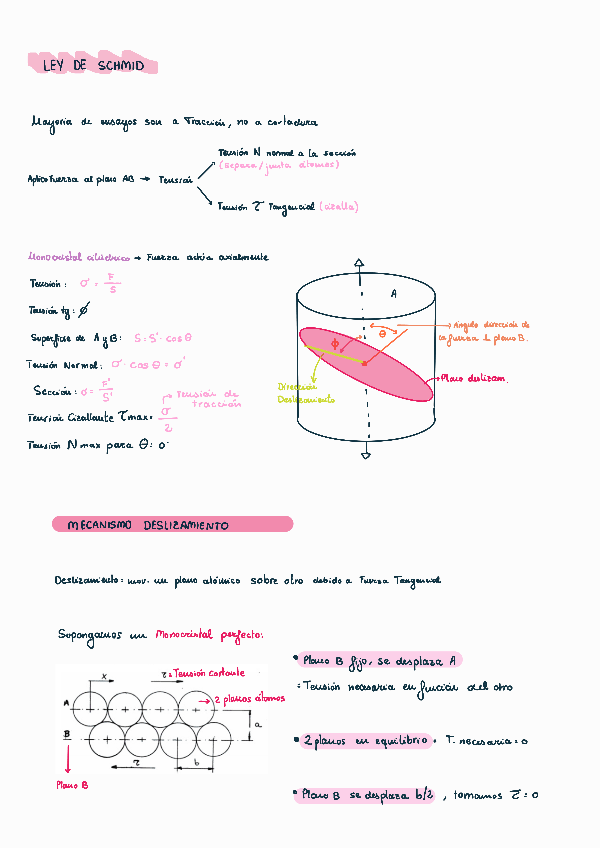 LEY DE SCHMID
Mayoría de ensayos son a Tracción, no a cortadura
Tensión N normal a la sección
(separa/junta átomos)
Aplico Fuerza al plano AB → Tensión
Tensión τ Tangencial (cizalla)
Monocristal cilíndrico → Fuerza actúa axialmente
Tensión: σ = F/S
Tensión tg: ϕ
Superficie de A y B: S = S' · cos θ
Tensión Normal: σ · cos θ = σ'
Sección: σ = F'/S'
Tensión de tracción
Tensión Cizallante τmax = σ/2
Tensión N max para θ: 0°
A
θ
ϕ
Ángulo dirección de
la fuerza ⊥ plano B.
Plano deslizam.
Dirección
Deslizamiento
MECANISMO DESLIZAMIENTO
Deslizamiento: mov. un plano atómico sobre otro debido a Fuerza Tangencial
Supongamos un Monocristal perfecto:
x
τ = Tensión cortante
A
2 planos átomos
a
B
τ
b
Plano B
• Plano B fijo, se desplaza A
: Tensión necesaria en función del otro
• 2 planos en equilibrio · T. necesaria = 0
• Plano B se desplaza b/2 , tomamos τ = 0